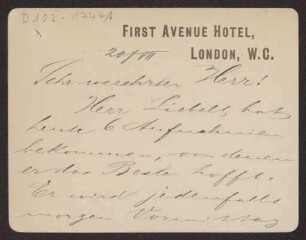 D 192-1744A
FIRST AVENUE HOTEL,
LONDON, W.C.
20/VII
Sehr verehrter Herr!
Herr Liebelt hat
heute 6 Aufnahmen
bekommen, von denen
er das Beste hofft.
Er wird jedenfalls
morgen Vormittag